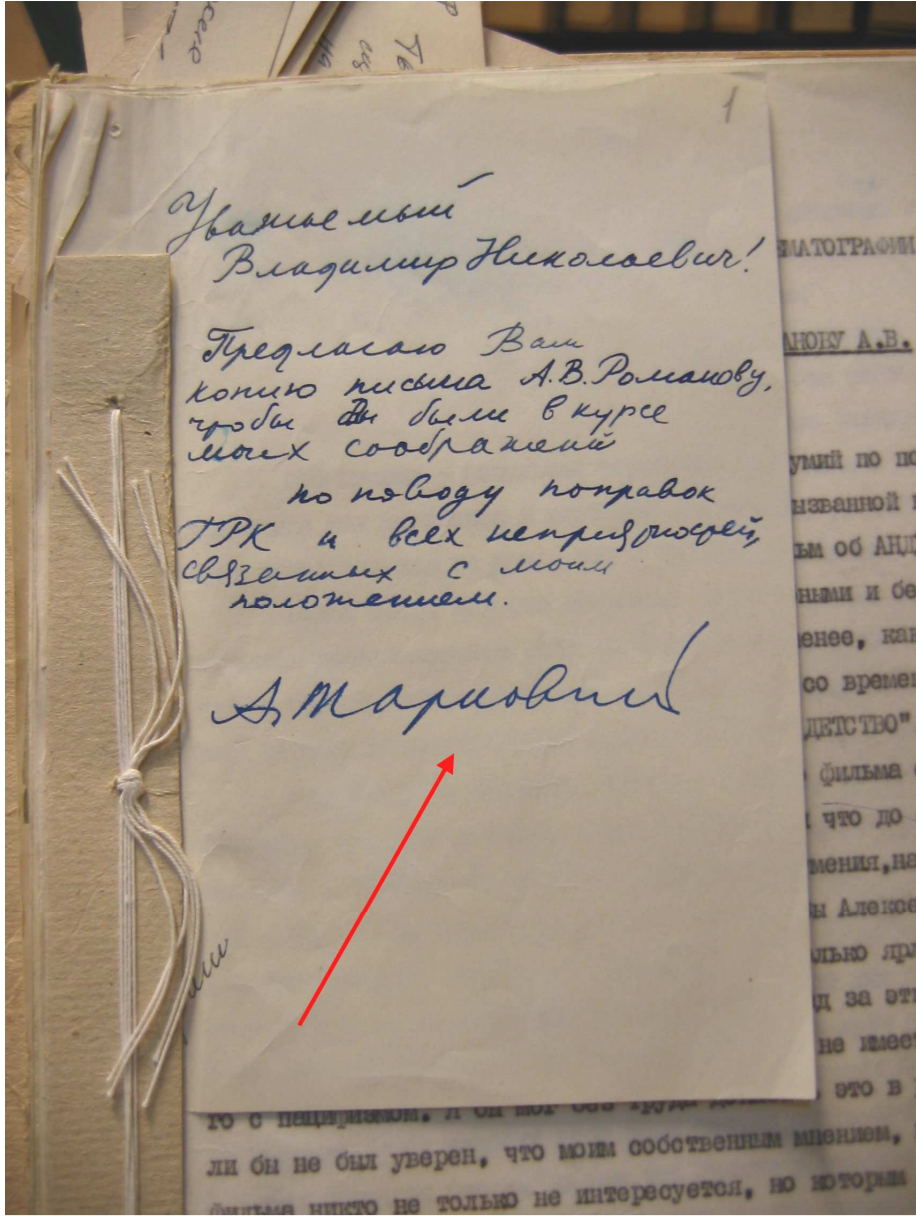 1
Уважаемый
Владимир Николаевич!
Предлагаю Вам
копию письма А.В. Романову,
чтобы Вы были в курсе
моих соображений
по поводу поправок
ГРК и всех неприятностей,
связанных с моим
положением.
А. Тарковский
ЕМАТОГРАФИИ
АНОВУ А.В.
умий по по
ызванной
ьм об АНД
ными и бе
енее, как
со времен
ДЕТСТВО"
фильма
что до
мения, на
ы Алексе
лько яр
д за эти
не имеет
го с нацаризмом. Я бы мог без труда это в
ли бы не был уверен, что моим собственным мнением,
фильма никто не только не интересуется, но которым